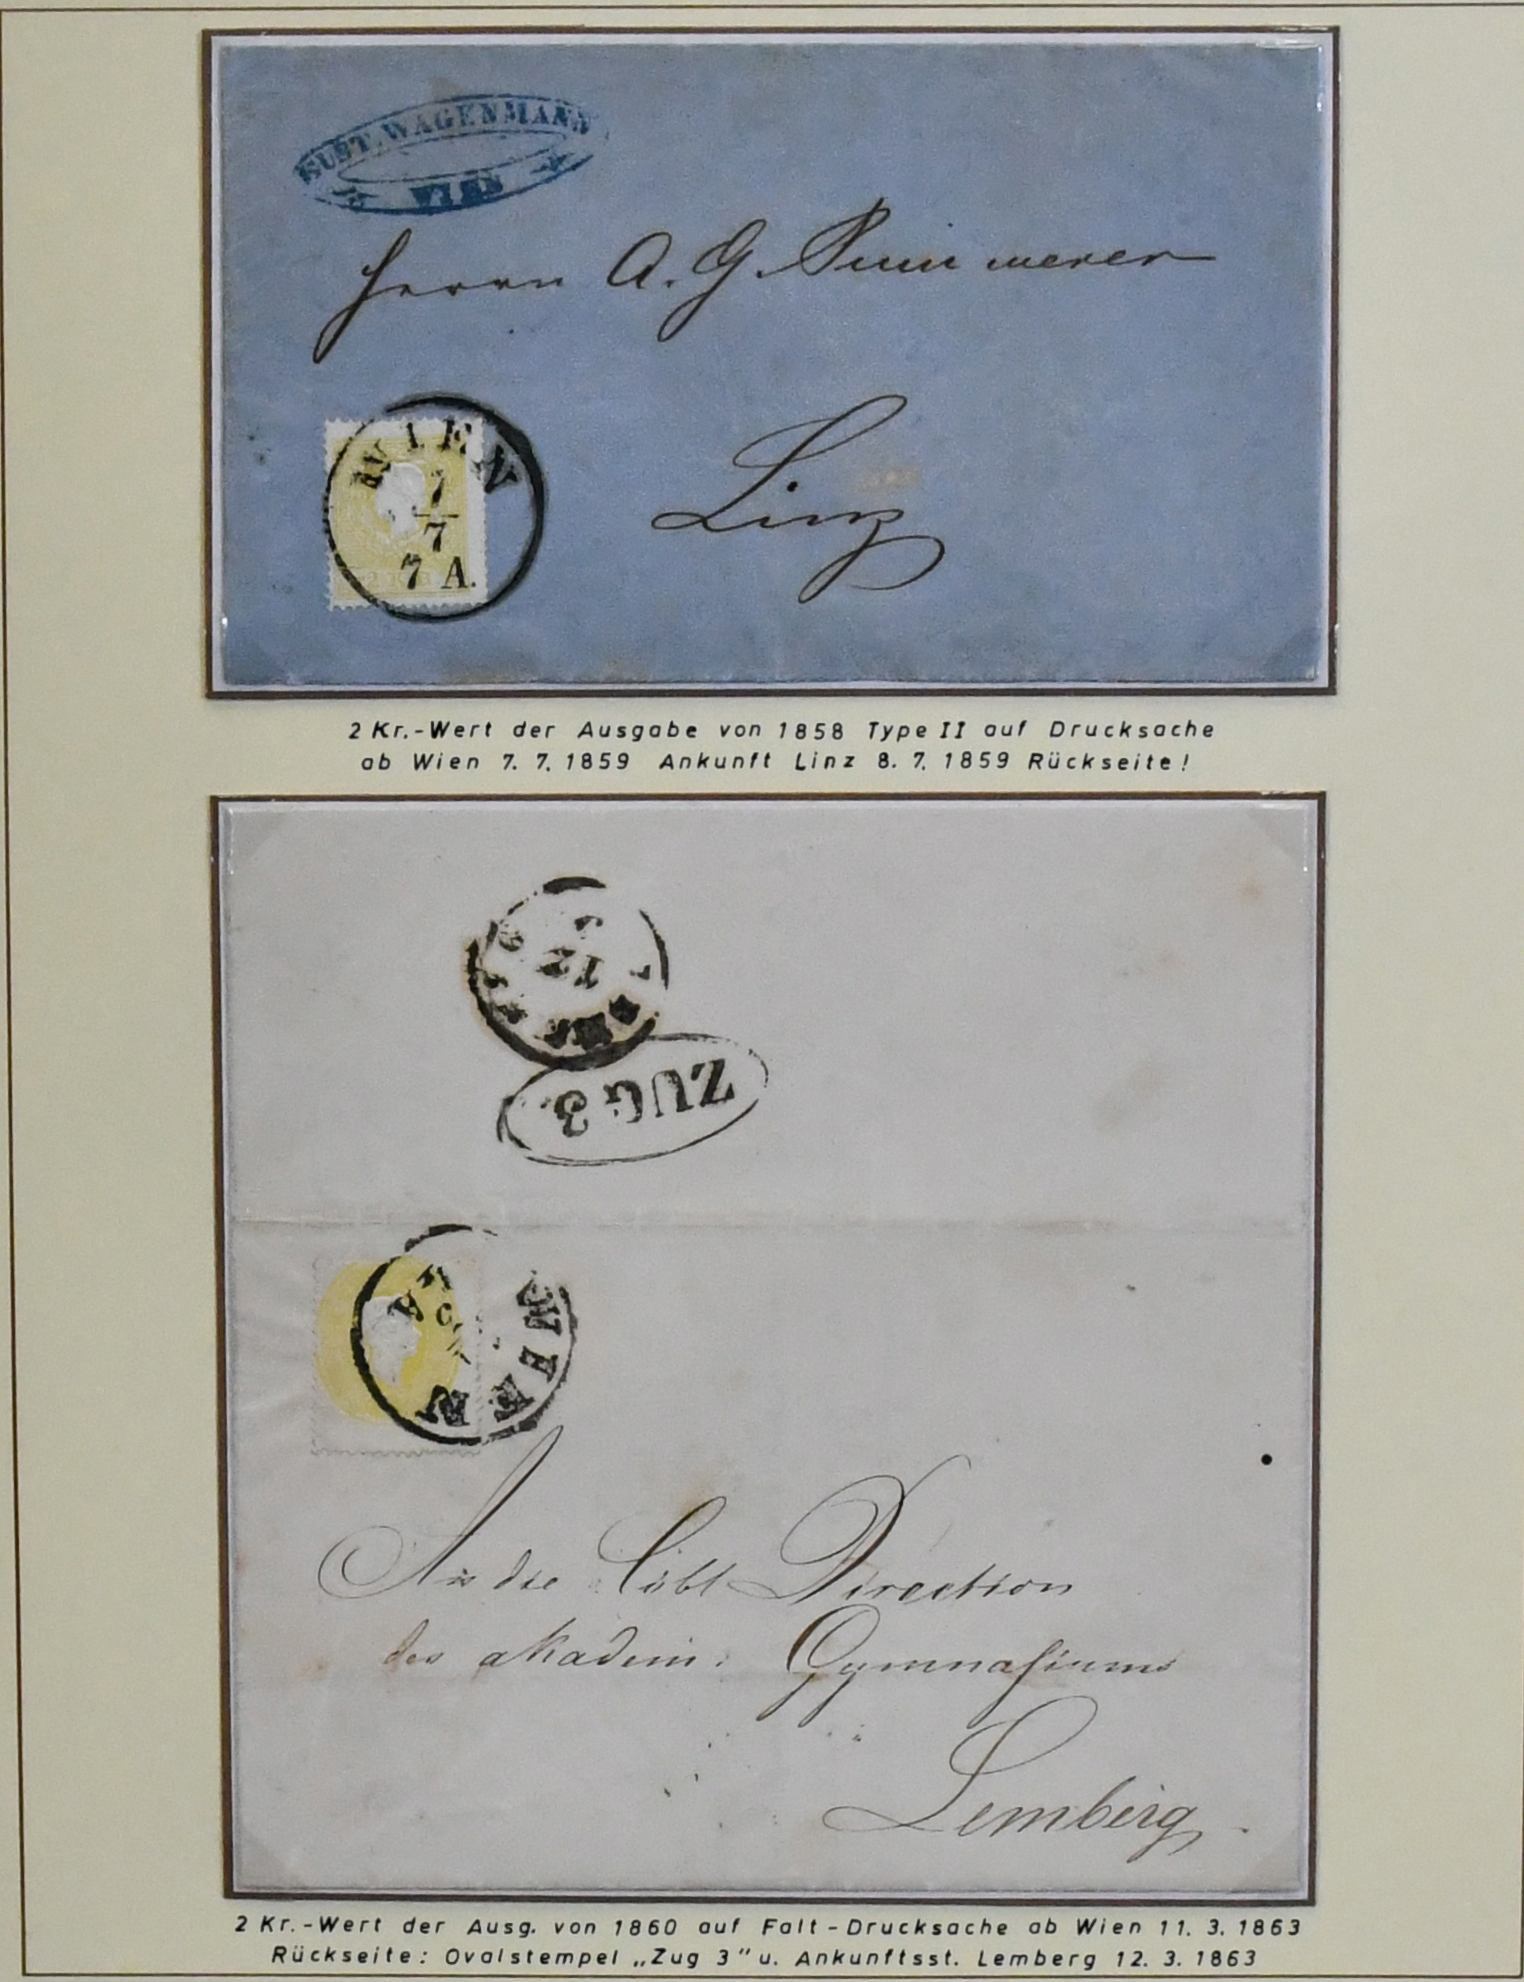 GUST. WAGENMANN
WIEN
Herrn A. G.
WIEN
7
7
7 A.
Linz
2 Kr.-Wert der Ausgabe von 1858 Type II auf Drucksache
ab Wien 7. 7. 1859 Ankunft Linz 8. 7. 1859 Rückseite!
12
3
ZUG 3
WIEN
An die Löbl Direction
des akadem: Gymnasiums
Lemberg
2 Kr.-Wert der Ausg. von 1860 auf Falt-Drucksache ab Wien 11. 3. 1863
Rückseite: Ovalstempel „Zug 3" u. Ankunftsst. Lemberg 12. 3. 1863